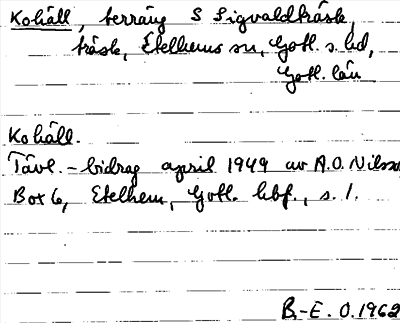 Kohäll, terräng S Sigvaldträsk,
träsk, Etelhems sn, Gotl. s. hd,
Gotl. län
Kohäll.
Tävl.-bidrag april 1949 av A.O. Nilsson
Box 6, Etelhem, Gotl. hbf., s. 1.
B.-E. O. 1962